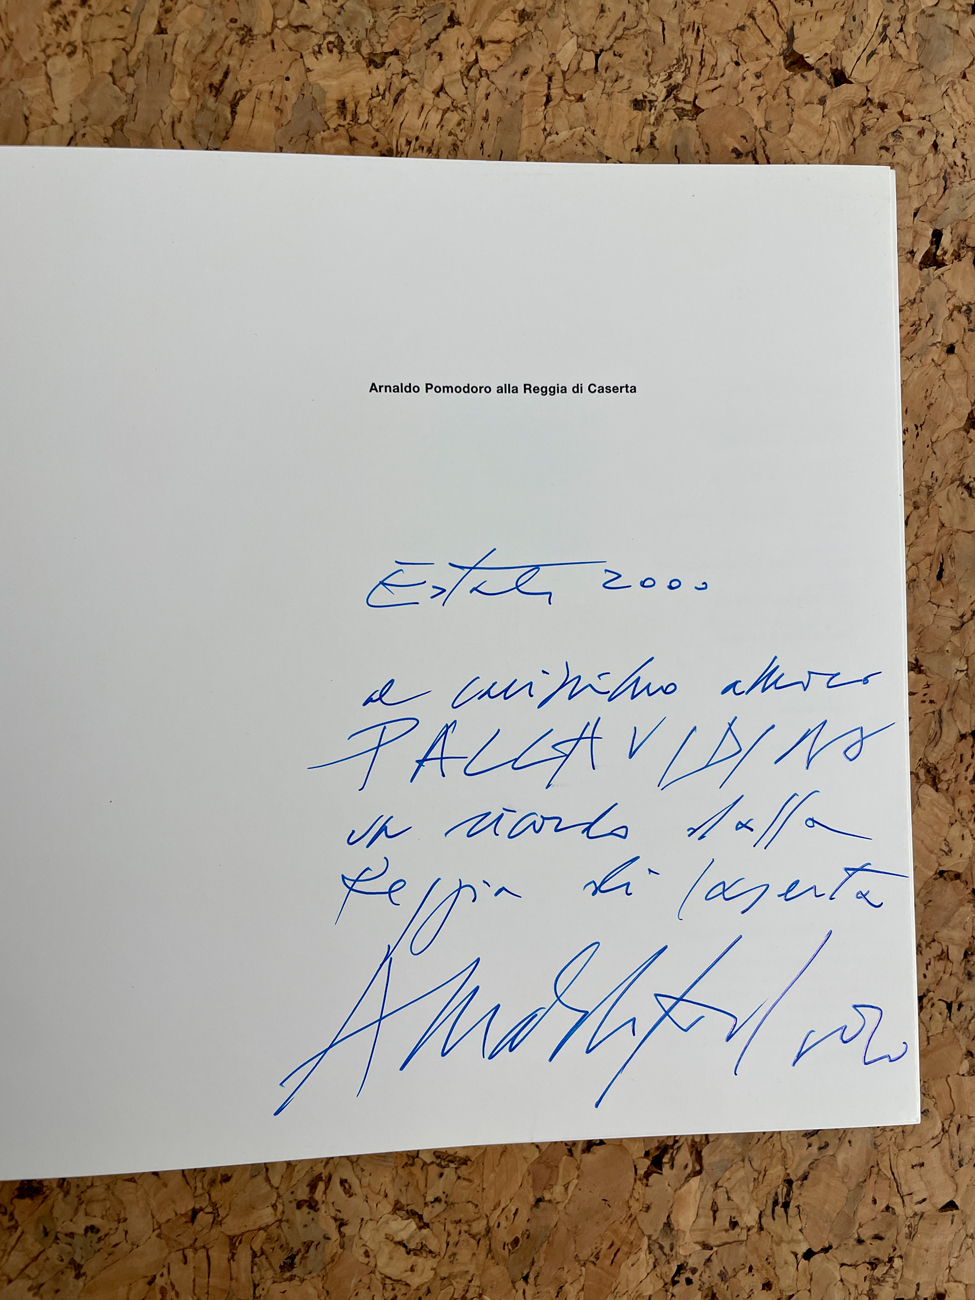 Arnaldo Pomodoro alla Reggia di Caserta
Estate 2000
al carissimo amico
PALLAVIDINO
un ricordo dalla
Reggia di Caserta
Arnaldo Pomodoro